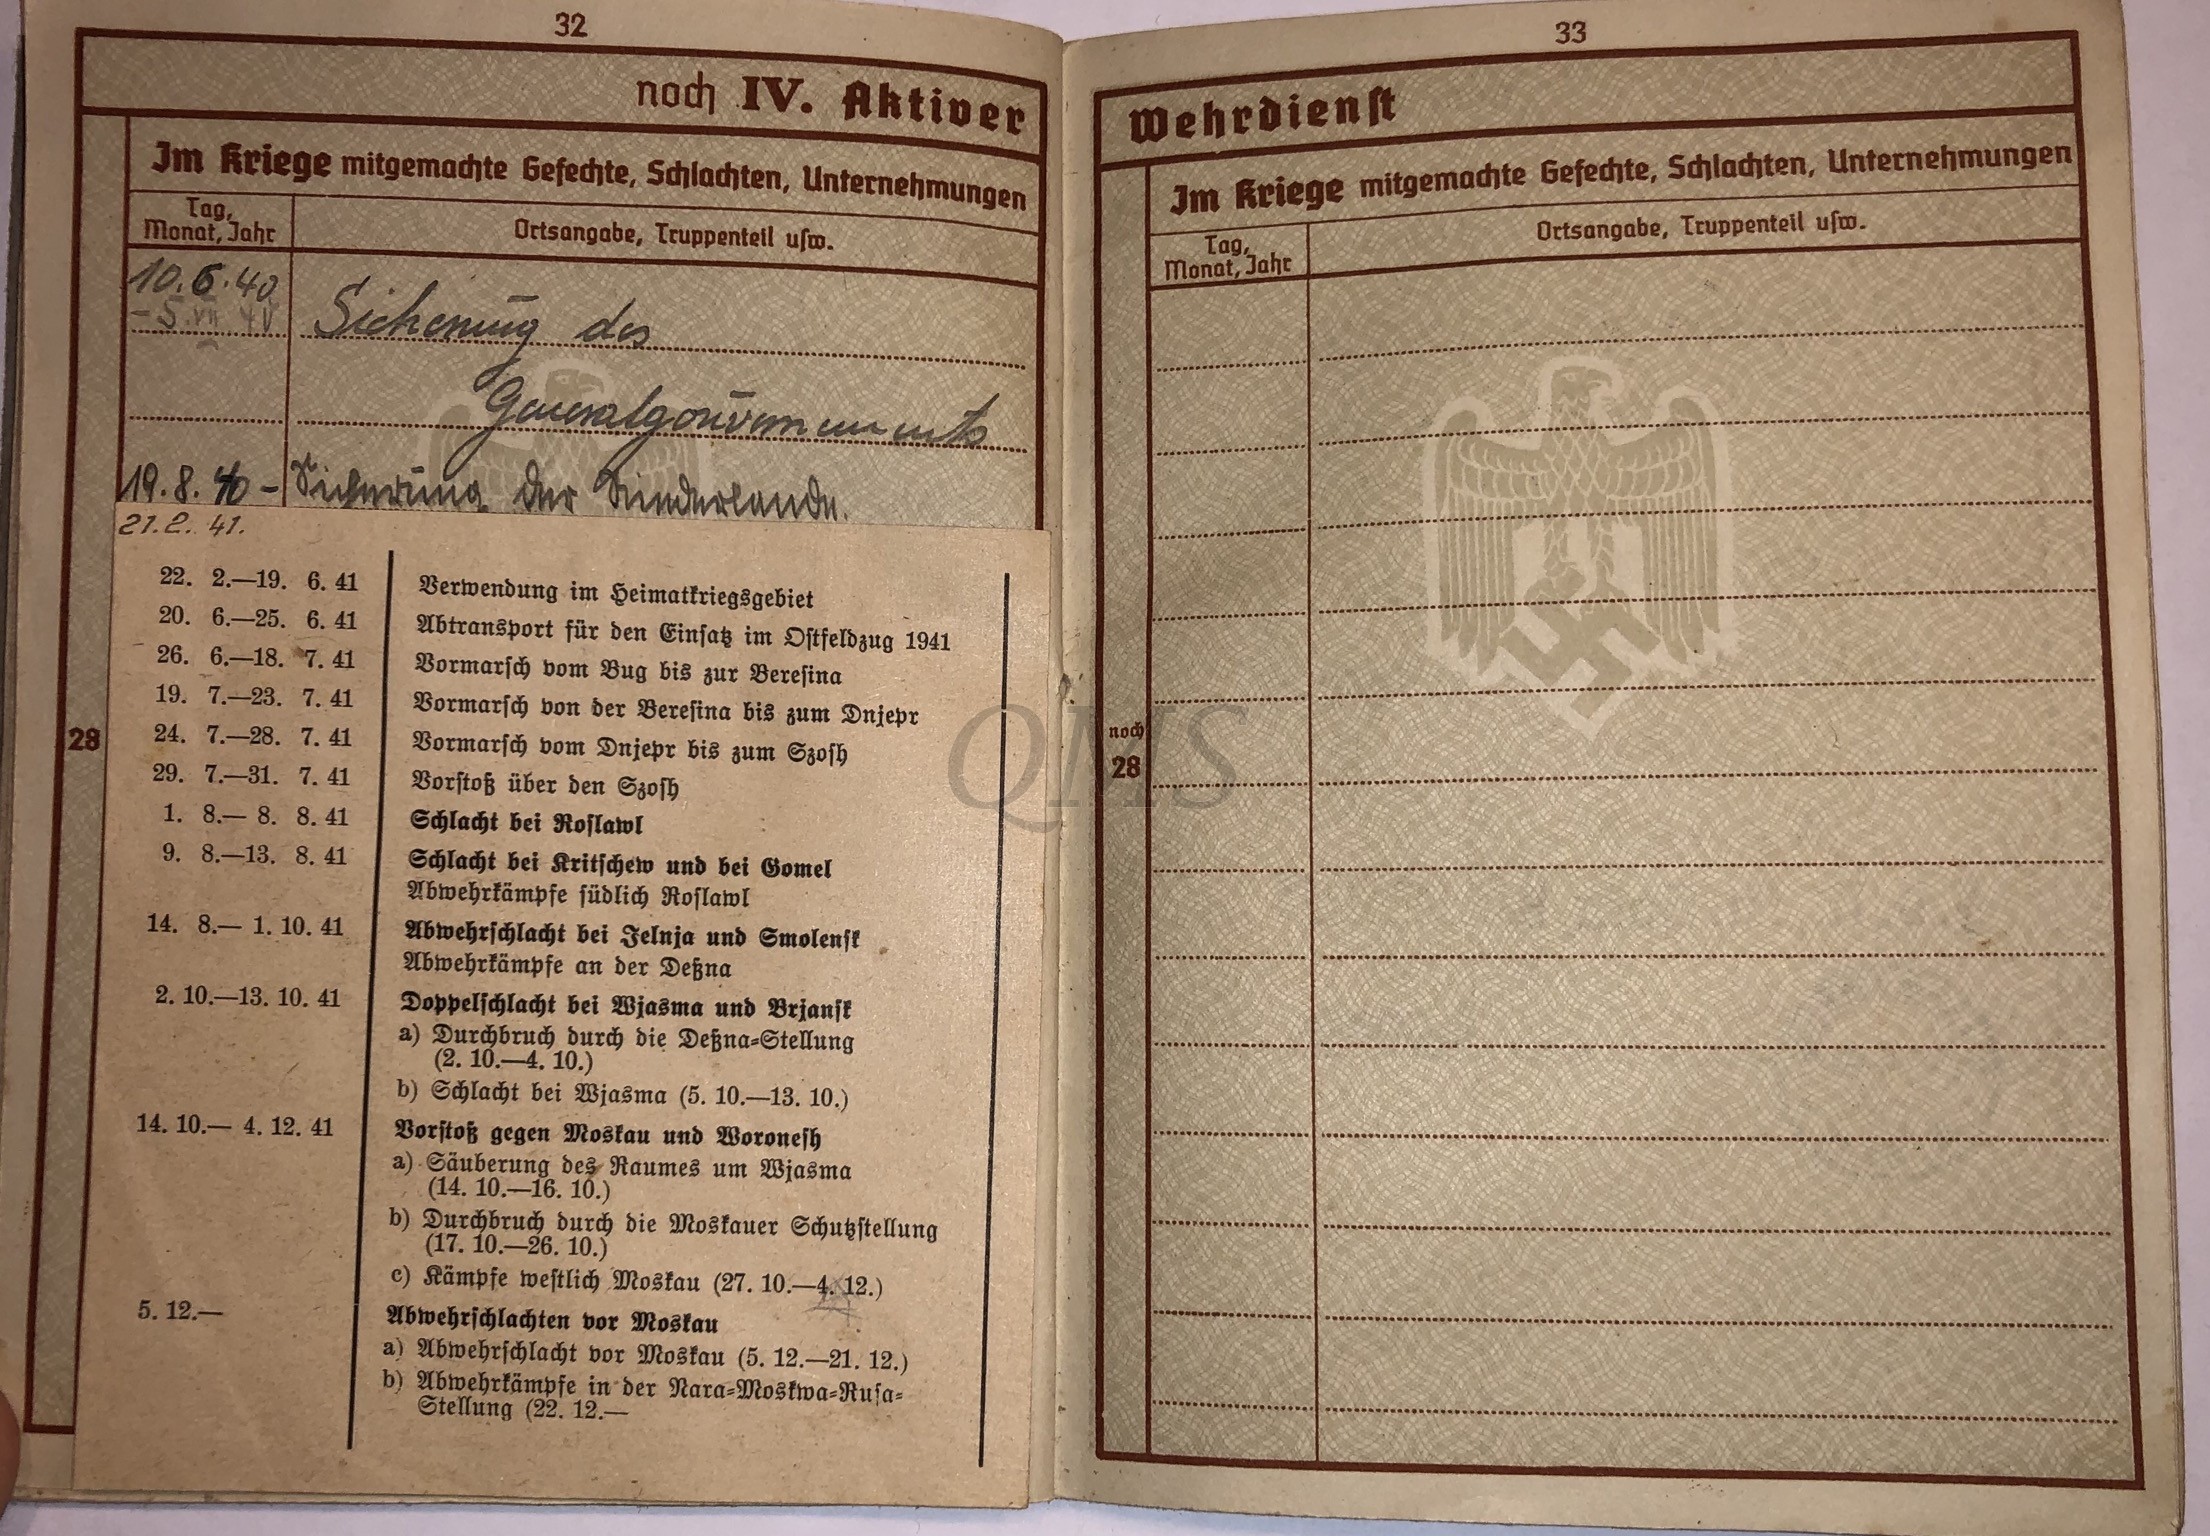 32
noch IV. Aktiver
Im Kriege mitgemachte Gefechte, Schlachten, Unternehmungen
Tag, Monat, Jahr
Ortsangabe, Truppenteil usw.
10.6.40
Sicherung des
Generalgouvernements
19.8.40 – Sicherung der Niederlande.
21.2.41.
22. 2.—19. 6. 41 Verwendung im Heimatkriegsgebiet
20. 6.—25. 6. 41 Abtransport für den Einsatz im Ostfeldzug 1941
26. 6.—18. 7. 41 Vormarsch vom Bug bis zur Beresina
19. 7.—23. 7. 41 Vormarsch von der Beresina bis zum Dnjepr
28
24. 7.—28. 7. 41 Vormarsch vom Dnjepr bis zum Szosh
29. 7.—31. 7. 41 Vorstoß über den Szosh
1. 8.— 8. 8. 41 Schlacht bei Roslawl
9. 8.—13. 8. 41 Schlacht bei Kritschew und bei Gomel
Abwehrkämpfe südlich Roslawl
14. 8.— 1. 10. 41 Abwehrschlacht bei Jelnja und Smolensk
Abwehrkämpfe an der Deßna
2. 10.—13. 10. 41 Doppelschlacht bei Wjasma und Brjansk
a) Durchbruch durch die Deßna-Stellung
(2. 10.—4. 10.)
b) Schlacht bei Wjasma (5. 10.—13. 10.)
14. 10.— 4. 12. 41 Vorstoß gegen Moskau und Woronesh
a) Säuberung des Raumes um Wjasma
(14. 10.—16. 10.)
b) Durchbruch durch die Moskauer Schutzstellung
(17. 10.—26. 10.)
c) Kämpfe westlich Moskau (27. 10.—4. 12.)
5. 12.— Abwehrschlachten vor Moskau
a) Abwehrschlacht vor Moskau (5. 12.—21. 12.)
b) Abwehrkämpfe in der Nara-Moskwa-Rusa-
Stellung (22. 12.—
33
Wehrdienst
Im Kriege mitgemachte Gefechte, Schlachten, Unternehmungen
Tag, Monat, Jahr
Ortsangabe, Truppenteil usw.
noch
28
QMS